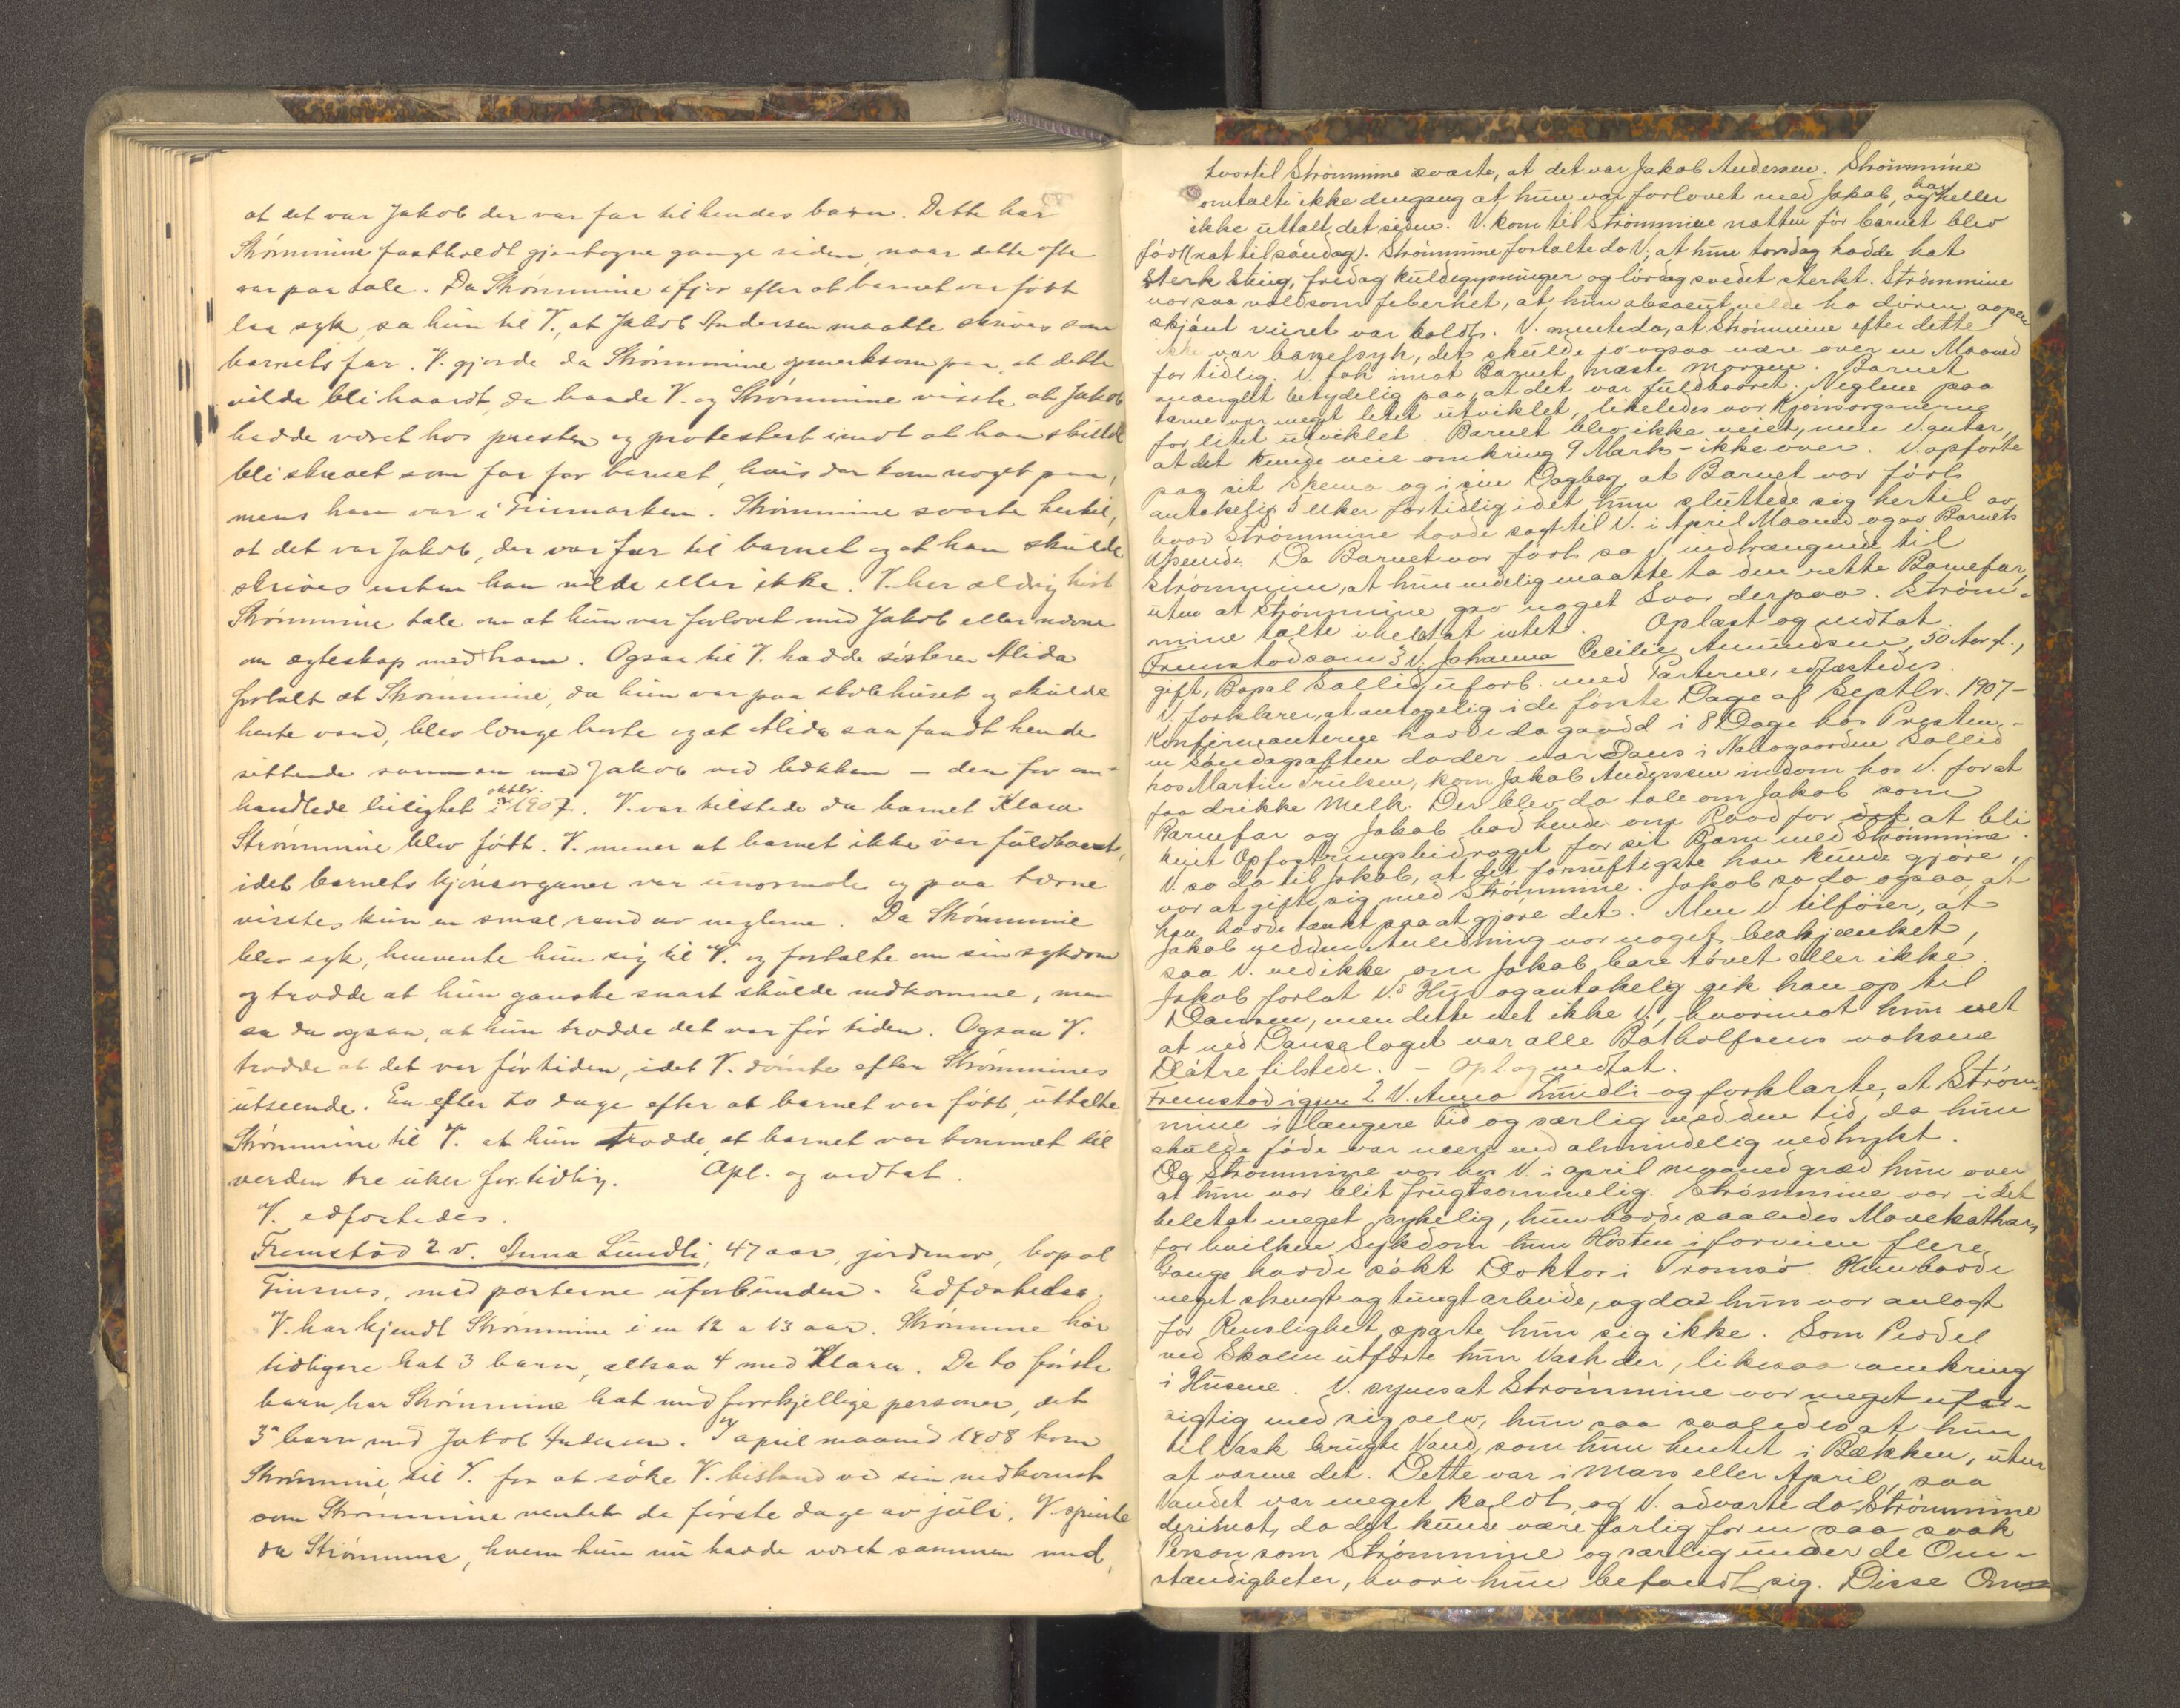 at det var Jakob der var far til hendes barn. Dette har
Strømmine fastholdt gjentagne gange siden, naar dette ofte
var paa tale. Da Strømmine ifjor efter at barnet var født
laa syk, sa hun til V., at Jakob Andersen maatte skrives som
barnets far. V. gjorde da Strømmine opmerksom paa, at dette
vilde bli haardt, da baade V. og Strømmine visste at Jakob
hadde været hos presten og protestert imot at han skulde
bli skrevet som far for barnet, hvis der kom noget paa,
mens han var i Finmarken. Strømmine svarte hertil,
at det var Jakob, der var far til barnet og at han skulde
skrives enten han vilde eller ikke. V. har aldrig hørt
Strømmine tale om at hun var forlovet med Jakob eller nævne
om egteskap med ham. Ogsaa til V. hadde søsteren Alida
fortalt at Strømmine, da hun var paa skolehuset og skulde
hente vand, blev længe borte og at Alida saa fandt hende
sittende sammen med Jakob ved bækken – den før om-
handlede leilighet i oktbr. 1907. V. var tilstede da barnet Klara
Strømmine blev født. V. mener at barnet ikke var fuldbaaret,
idet barnets kjønsorganer var unormale og paa tærne
visstes kun en smal rand av neglene. Da Strømmine
blev syk, henvente hun sig til V. og fortalte om sin sykdom
og trodde at hun ganske snart skulde nedkomme, men
sa da ogsaa, at hun trodde det var før tiden. Ogsaa V.
trodde at det var før tiden, idet V. dømte efter Strømmines
utseende. En eller to dage efter at barnet var født, uttalte
Strømmine til V. at hun trodde, at barnet var kommet til
verden tre uker for tidlig. Opl. og vedtat.
V. edfæstedes.
Fremstod 2 v. Anna Lundli, 47 aar, jordmor, bopæl
Finsnes, med parterne uforbunden. Edfæstedes.
V. har kjendt Strømmine i en 12 a 13 aar. Strømmine har
tidligere hat 3 barn, altsaa 4 med Klara. De to første
barn har Strømmine hat med forskjellige personer, det
3e barn med Jakob Andersen. I april maaned 1908 kom
Strømmine til V. for at søke V. bistand ved sin nedkomst
som Strømmine ventet de første dage av juli. V. spurte
da Strømmine, hvem hun nu hadde været sammen med,
hvortil Strømmine svarte, at det var Jakob Andersen. Strømmine
omtalte ikke dengang at hun var forlovet med Jakob, og har heller
ikke uttalt det siden. V. kom til Strømmine natten før barnet blev
født (nat til søndag). Strømmine fortalte da V, at hun torsdag hadde hat
sterk sting, fredag kuldegysninger og lørdag svedet sterkt. Strømmine
var saa voldsom feberhet, at hun absolut vilde ha døren aapen
skjønt veiret var koldt. V. mente da, at Strømmine efter dette
ikke var barselsyk, det skulde jo ogsaa være over en Maaned
for tidlig. V. tok imot Barnet næste Morgen. Barnet
manglet betydelig paa, at det var fuldbaaret. Neglene paa
tærne var meget litet utviklet, likeledes var Kjønsorganerne
for litet utviklet. Barnet blev ikke veiet, men V. antar,
at det kunde veie omkring 9 Mark – ikke over. V. opførte
paa sit Skema og i sin Dagbog, at Barnet var født
antakelig 5 Uker fortidlig idet hun sluttede sig hertil av
hvad Strømmine havde sagt til V. i April Maaned og av Barnets
Utseende. Da Barnet var født sa V. indtrængende til
Strømmine, at hun endelig maatte ta den rette Barnefar,
uten at Strømmine gav noget Svar derpaa. Strøm-
mine talte i heletat intet. Oplæst og vedtat.
Fremstod som 3 V. Johanna Cecilie Amundsen, 50 Aar gl.,
gift, Bopæl Sollid, uforb. med Parterne, edfæstedes.
V. forklarer, at antagelig i de første Dage af Septbr. 1907 –
Konfirmanterne havde da gaadd i 8 Dage hos Presten, –
en Søndagsaften da der var Dans i Nabogaarden Sollid
hos Martin Trulsen, kom Jakob Andersen indom hos V. for at
faa drikke Melk. Der blev da tale om Jakob som
Barnefar og Jakob bad hende om Raad for at bli
kvit Opfostringsbidraget for sit Barn med Strømmine.
V. sa da til Jakob, at det fornuftigste han kunde gjøre,
var at gifte sig med Strømmine. Jakob sa da ogsaa, at
han havde tænkt paa at gjøre det. Men V. tilføier, at
Jakob ved den Anledning var noget beskjænket,
saa V. ved ikke om Jakob bare tøvet eller ikke.
Jakob forlot V.s Hus og antakelig gik han op til
Dansen, men dette vet ikke V., hvorimot hun vet
at ved Danselaget var alle Botholfsens voksne
Døtre tilstede. – Opl. og vedtat.
Fremstod igjen 2 V. Anna Lundli og forklarte, at Strøm-
mine i længere tid og særlig ved den tid, da hun
skulde føde var mere end almindelig nedtrykt.
Da Strømmine var hos V. i april maaned græd hun over
at hun var blit frugtsommelig. Strømmine var i det
heletat meget sykelig, hun havde saaledes Mavekathar,
for hvilken Sykdom hun Høsten i forveien flere
Gange havde søkt Doktor i Tromsø. Hun havde
meget strengt og tungt arbeide, og da hun var anlagt
for Renslighet sparte hun sig ikke. Som Pedel
ved Skolen utførte hun Vask der, likesaa omkring
i Husene. V. synes at Strømmine var meget ufor-
sigtig med sig selv, hun saa saaledes at hun
til Vask brugte Vand, som hun hentet i Bækken, uten
at varme det. Dette var i Mars eller April, saa
Vandet var meget koldt, og V. advarte da Strømmine
derimot, da det kunde være farlig for en saa svak
Person som Strømmine og særlig under de Om-
stændigheter, hvori hun befandt sig. Disse Om-